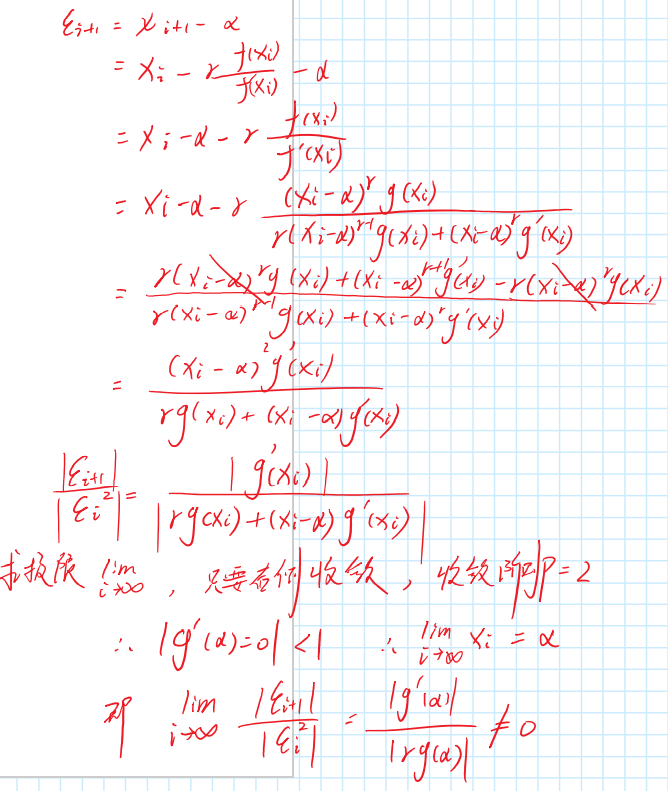 ε_{i+1} = x_{i+1} - α
= x_i - r \frac{f(x_i)}{f'(x_i)} - α
= x_i - α - r \frac{f(x_i)}{f'(x_i)}
= x_i - α - r \frac{(x_i-α)^r g(x_i)}{r(x_i-α)^{r-1} g(x_i) + (x_i-α)^r g'(x_i)}
= \frac{r(x_i-α)^r g(x_i) + (x_i-α)^{r+1} g'(x_i) - r(x_i-α)^r g(x_i)}{r(x_i-α)^{r-1} g(x_i) + (x_i-α)^r g'(x_i)}
= \frac{(x_i-α)^2 g'(x_i)}{r g(x_i) + (x_i-α) g'(x_i)}
\frac{|ε_{i+1}|}{|ε_i^2|} = \frac{|g'(x_i)|}{|r g(x_i) + (x_i-α) g'(x_i)|}
求极限 \lim_{i→∞} , 只要 收敛 , 收敛阶 p = 2
∴ |g'(α)=0| < 1 ∴ \lim_{i→∞} x_i = α
即 \lim_{i→∞} \frac{|ε_{i+1}|}{|ε_i^2|} = \frac{|g'(α)|}{|r g(α)|} ≠ 0